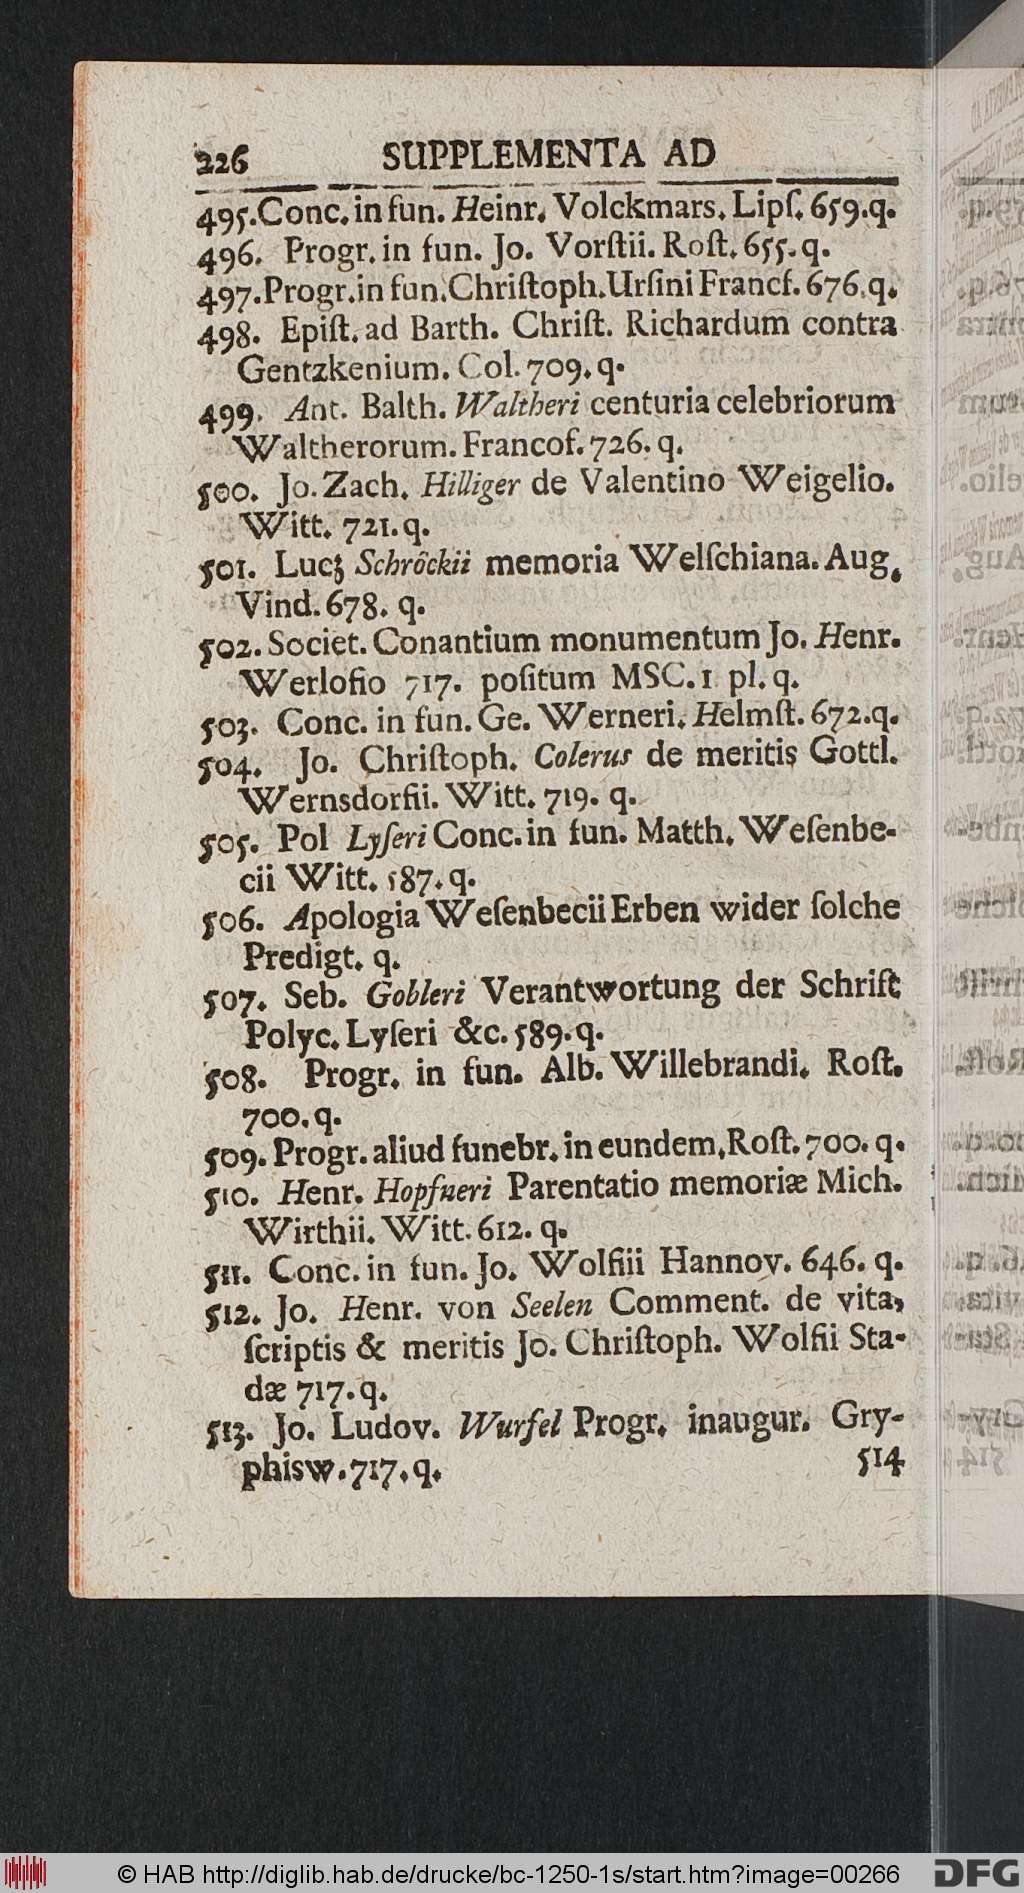 226 SUPPLEMENTA AD
495. Conc. in fun. Heinr. Volckmars. Lipſ. 659. q.
496. Progr. in fun. Jo. Vorſtii. Roſt. 655. q.
497. Progr. in fun. Chriſtoph. Urſini Francf. 676. q.
498. Epiſt. ad Barth. Chriſt. Richardum contra
Gentzkenium. Col. 709. q.
499. Ant. Balth. Waltheri centuria celebriorum
Waltherorum. Francof. 726. q.
500. Jo. Zach. Hilliger de Valentino Weigelio.
Witt. 721. q.
501. Lucȝ Schröckii memoria Welſchiana. Aug.
Vind. 678. q.
502. Societ. Conantium monumentum Jo. Henr.
Werlofio 717. poſitum MSC. 1 pl. q.
503. Conc. in fun. Ge. Werneri. Helmſt. 672. q.
504. Jo. Chriſtoph. Colerus de meritis Gottl.
Wernsdorfii. Witt. 719. q.
505. Pol Lyſeri Conc. in fun. Matth. Weſenbe-
cii Witt. 587. q.
506. Apologia Weſenbecii Erben wider ſolche
Predigt. q.
507. Seb. Gobleri Verantwortung der Schrift
Polyc. Lyſeri &c. 589. q.
508. Progr. in fun. Alb. Willebrandi. Roſt.
700. q.
509. Progr. aliud funebr. in eundem, Roſt. 700. q.
510. Henr. Hopfneri Parentatio memoriæ Mich.
Wirthii. Witt. 612. q.
511. Conc. in fun. Jo. Wolfiii Hannov. 646. q.
512. Jo. Henr. von Seelen Comment. de vita,
ſcriptis & meritis Jo. Chriſtoph. Wolfii Sta-
dæ 717. q.
513. Jo. Ludov. Wurfel Progr. inaugur. Gry-
phisw. 717. q. 514
© HAB http://diglib.hab.de/drucke/bc-1250-1s/start.htm?image=00266 DFG